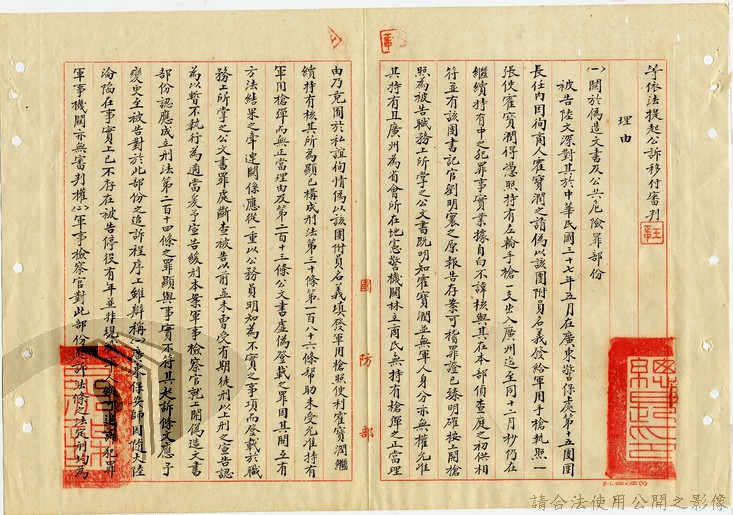 等依法提起公訴移付審判
理由
㈠關於偽造文書及公共危險罪部份
被告陸文深對其於中華民國三十七年五月在廣東警保處第十五團團
長任內因徇商人霍寶潤之請偽以該團附員名義發給軍用手槍執照一
張使霍寶潤得憑照持有左輪手槍一支出入廣州迄至同十二月杪仍在
繼續持有中之犯罪事實業據自白不諱核與其在本部偵查庭之初供相
符並有該團書記官劉明寰之原報告存案可稽罪證已臻明確按上開槍
照為被告職務上所掌之公文書既明知霍寶潤並無軍人身分亦無權允准
其持有且廣州為省會所在地憲警機關林立商民無持有槍彈之正當理
由乃竟囿於私誼徇情偽以該團附員名義填發軍用槍照使利霍寶潤繼
續持有核其所為顯已構成刑法第三十條第一百八十六條幫助未受允准持有
軍用槍彈而無正當理由及第二百十三條公文書虛偽登載之罪因其間互有
方法結果之牽連關係應從一重以公務員明知為不實之事項而登載於職
務上所掌之公文書罪處斷查被告以前並未曾受有期徒刑以上之宣告認
為以暫不執行為適當爰予宣告緩刑本案軍事檢察官就上開偽造文書
部份認應成立刑法第二百十四條之罪顯與事實不符其起訴條文應予
變更至被告對於此部份之追訴程序上雖辯稱㈠廣東保安師因隨大陸
淪陷在事實上已不存在被告停役有年並非現
軍事機關亦無審判權㈡軍事檢察官對此部份起訴法條之法定刑均為
國防部
請合法使用公開之影像